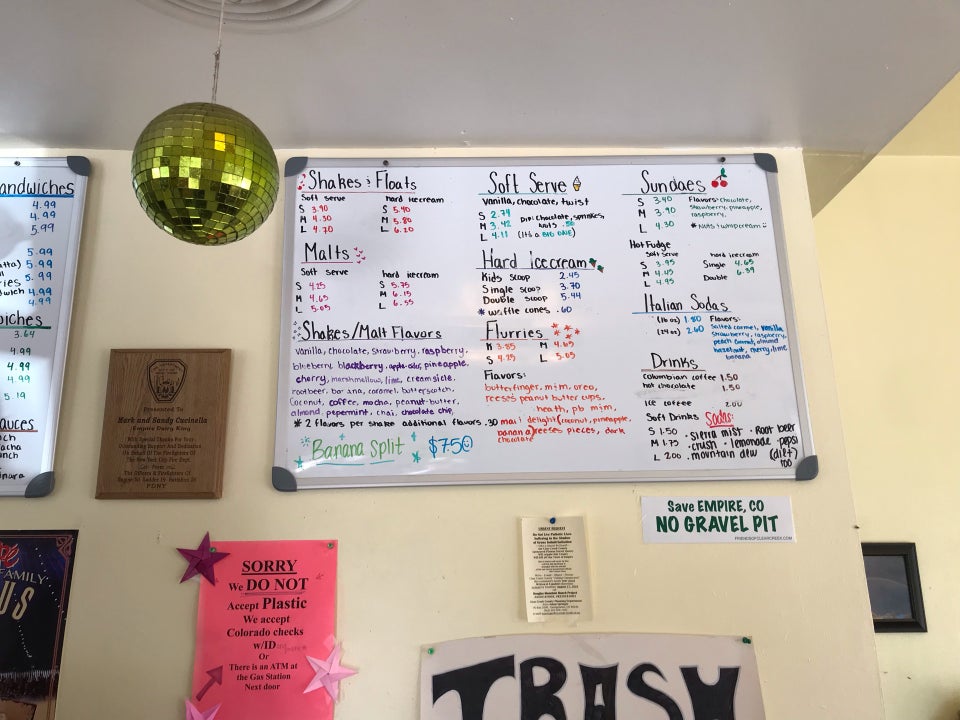 andwiches
4.99
4.99
5.99
5.99
atta) 5.99
ries 5.99
dwich 4.99
4.99
iches
3.64
4.99
4.99
4.99
5.19
auces
Shakes & Floats
Soft serve hard icecream
S 3.90 S 5.40
M 4.30 M 5.80
L 4.70 L 6.20
Malts
Soft serve hard icecream
S 4.25 S 5.75
M 4.65 M 6.15
L 5.05 L 6.55
Shakes/Malt Flavors
vanilla, chocolate, strawberry, raspberry,
blueberry, blackberry, apple cider, pineapple,
cherry, marshmellow, lime, creamsicle,
rootbeer, banana, caramel, butterscotch,
Coconut, coffee, mocha, peanut-butter,
almond, pepermint, chai, chocolate chip,
* 2 flavors per shake additional flavors .30
Banana Split $7.50
Soft Serve
Vanilla, chocolate, twist
S 2.74
M 3.42
L 4.11 (It's a BIG ONE)
Dip: chocolate, sprinkles,
nuts .50
Hard icecream
Kids scoop 2.45
Single scoop 3.70
Double scoop 5.44
* waffle cones .60
Flurries
K 3.85 M 4.65
S 4.25 L 5.05
Flavors:
butterfinger, m:m, oreo,
reeses peanut butter cups,
heath, pb m:m,
maui delight (coconut, pineapple,
banana) reeses pieces, dark
chocolate
Sundaes
S 3.40
M 3.90
L 4.30
Flavors: chocolate,
strawberry, pineapple,
raspberry,
* Nuts & whipcream
Hot Fudge
Soft serve hard icecream
S 3.95 Single 4.65
M 4.45 Double 6.39
L 4.95
Italian Sodas
(16 oz) 1.80
(24 oz) 2.60
Flavors:
Salted carmel, vanilla
strawberry, raspberry
peach coconut, almond
hazelnut, cherry, lime
banana
Drinks
Columbian coffee 1.50
hot chocolate 1.50
Ice coffee 2.00
Soft Drinks Sodas:
S 1.50 · Sierra mist · Root beer
M 1.75 · crush · lemonade · pepsi
L 2.00 · mountain dew (diet)
100
Presented To
Mark and Sandy Cucinella
Empire Dairy King
With Special Thanks For Your
Outstanding Support And Dedication
On Behalf Of The Firefighters Of
The New York City Fire Dept.
FDNY
Save EMPIRE, CO
NO GRAVEL PIT
FRIENDSOFCLEARCREEK.COM
FAMILY
US
SORRY
We DO NOT
Accept Plastic
We accept
Colorado checks
w/ID
Or
There is an ATM at
the Gas Station
Next door
TRASH